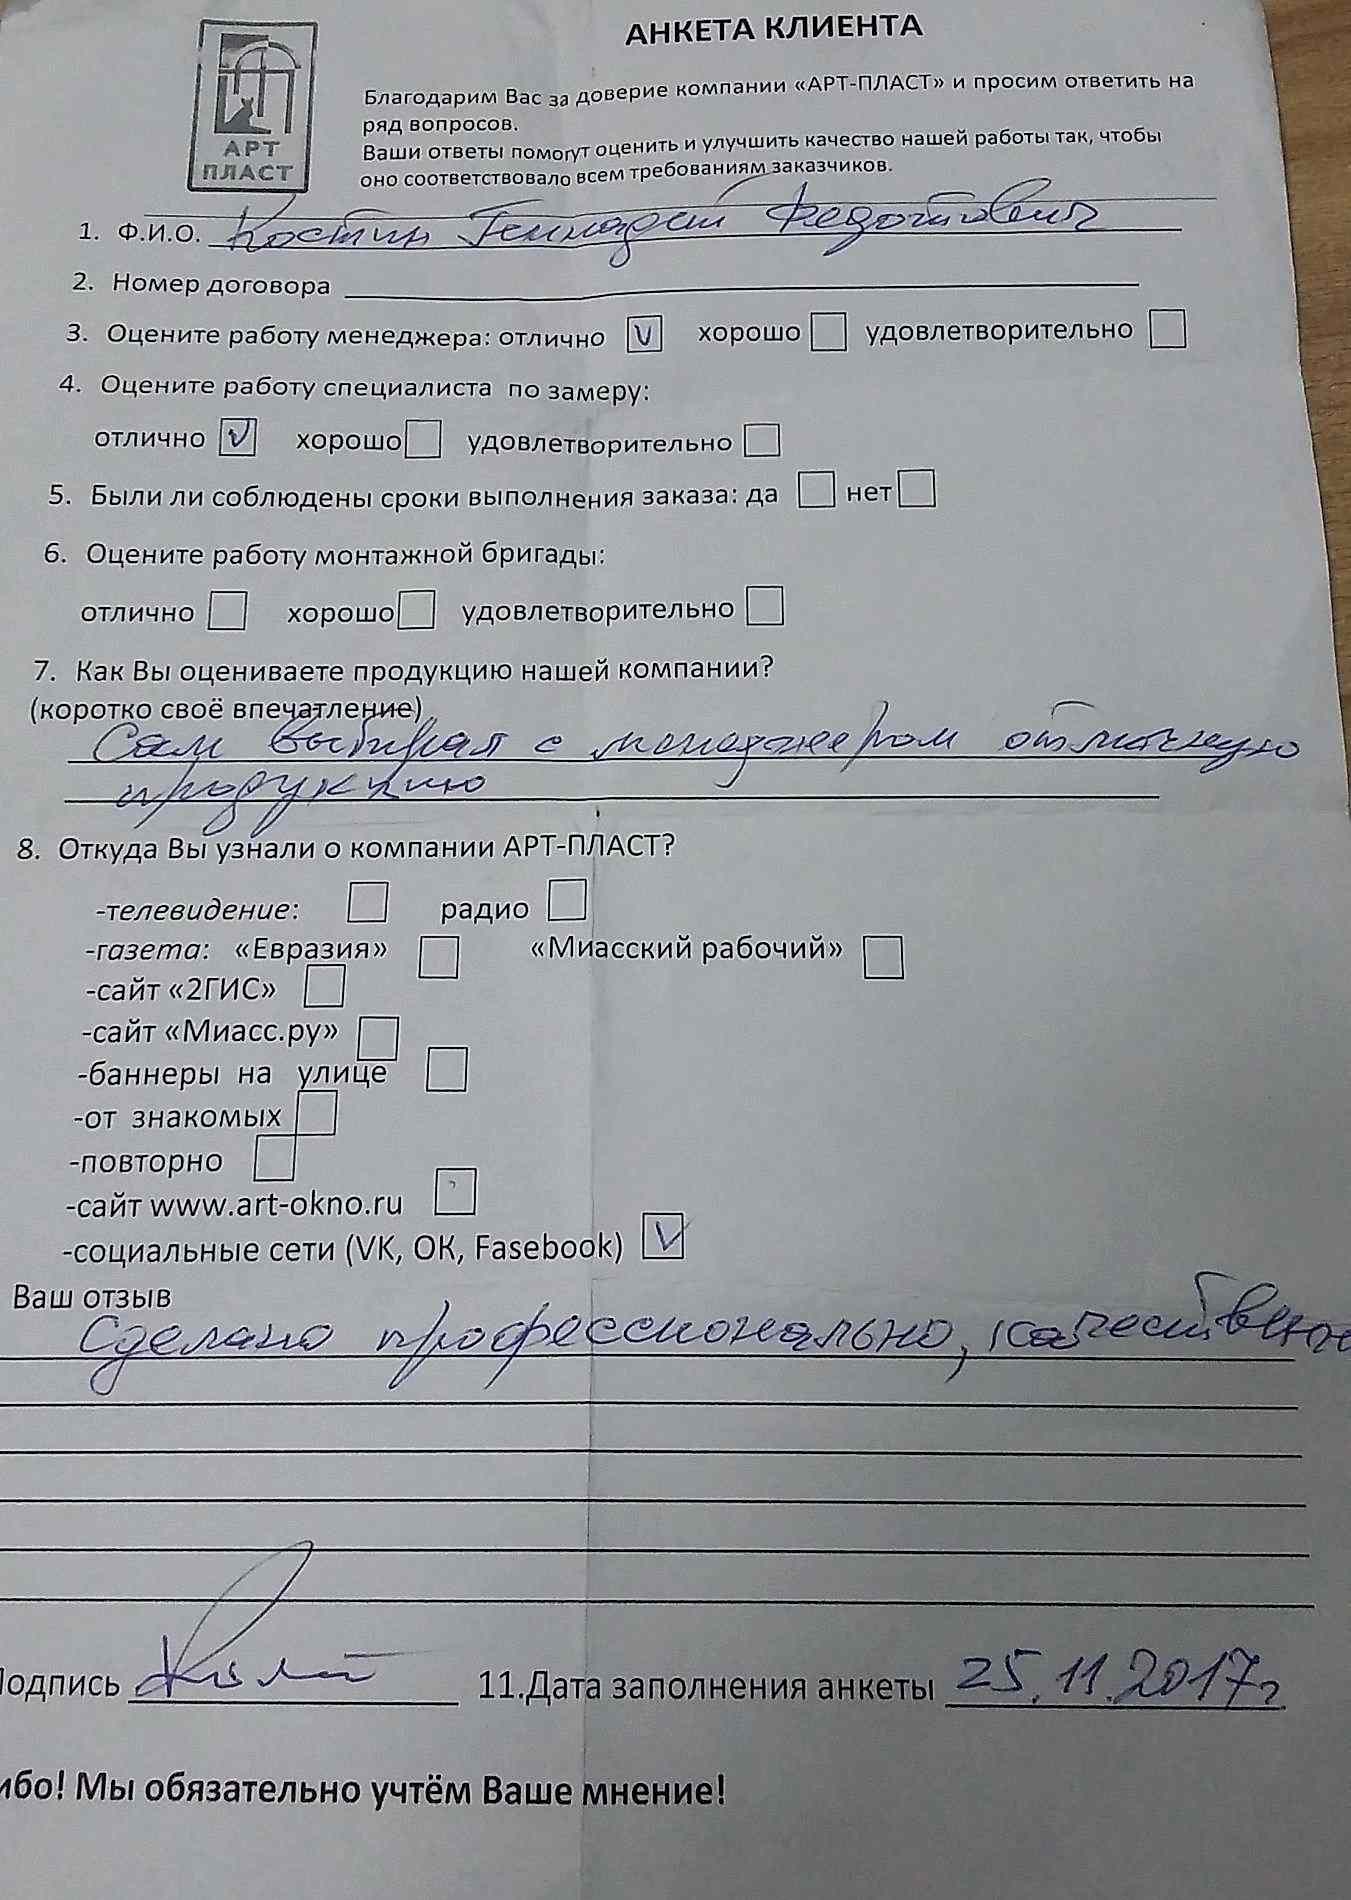 АНКЕТА КЛИЕНТА
АРТ
ПЛАСТ
Благодарим Вас за доверие компании «АРТ-ПЛАСТ» и просим ответить на
ряд вопросов.
Ваши ответы помогут оценить и улучшить качество нашей работы так, чтобы
оно соответствовало всем требованиям заказчиков.
1. Ф.И.О. Костин Геннадий Федотович
2. Номер договора
3. Оцените работу менеджера: отлично V хорошо удовлетворительно
4. Оцените работу специалиста по замеру:
отлично V хорошо удовлетворительно
5. Были ли соблюдены сроки выполнения заказа: да нет
6. Оцените работу монтажной бригады:
отлично хорошо удовлетворительно
7. Как Вы оцениваете продукцию нашей компании?
(коротко своё впечатление)
Сам выбирал с менеджером отличную
продукцию
8. Откуда Вы узнали о компании АРТ-ПЛАСТ?
-телевидение: радио
-газета: «Евразия» «Миасский рабочий»
-сайт «2ГИС»
-сайт «Миасс.ру»
-баннеры на улице
-от знакомых
-повторно
-сайт www.art-okno.ru
-социальные сети (VK, ОК, Fasebook) V
Ваш отзыв
Сделано профессионально, качественно
Подпись 11.Дата заполнения анкеты 25.11.2017г
ибо! Мы обязательно учтём Ваше мнение!